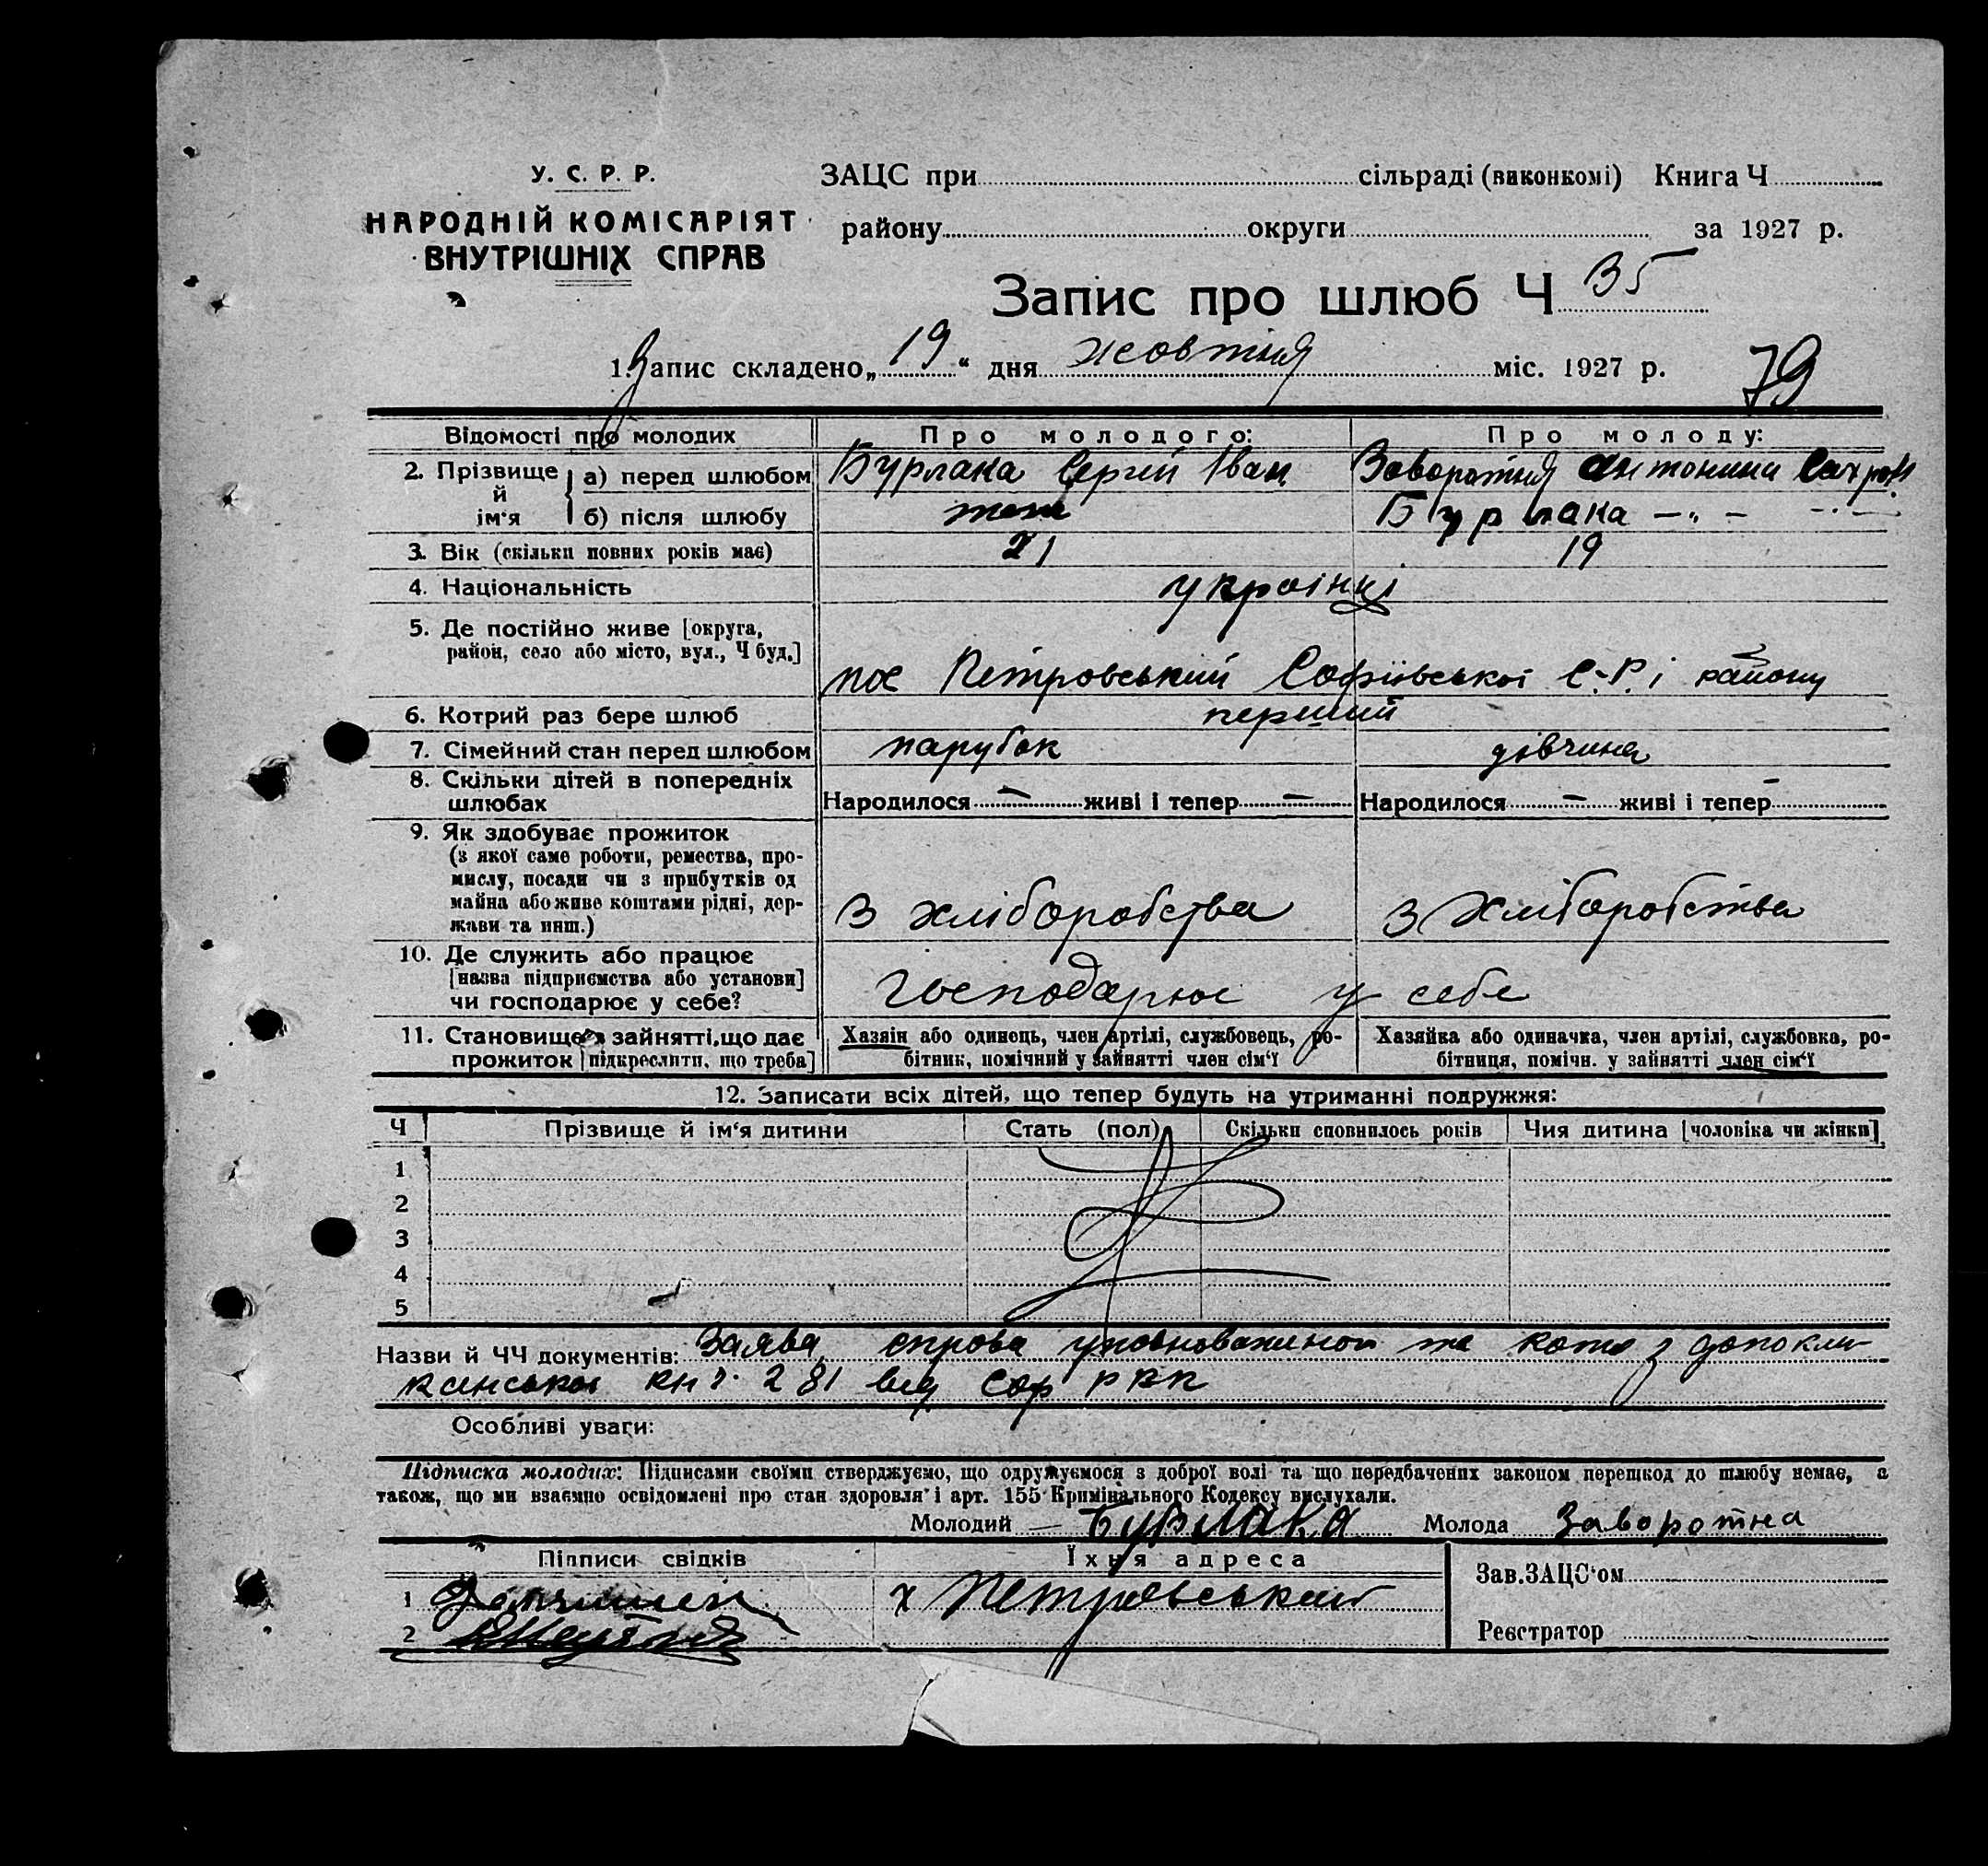 У. С. Р. Р.
НАРОДНІЙ КОМІСАРІЯТ
ВНУТРІШНІХ СПРАВ
ЗАЦС при сільраді (виконкомі) Книга Ч
району округи за 1927 р.
Запис про шлюб Ч 35
1. Запис складено „ 19 “ дня жовтня міс. 1927 р. 79
Відомості про молодих Про молодого: Про молоду:
2. Прізвище й ім‘я а) перед шлюбом Бурлака Сергій Іван Заворотня Антонина
б) після шлюбу Бурлака —„—
3. Вік (скільки повних років має) 21 19
4. Національність українці
5. Де постійно живе [округа,
район, село або місто, вул., Ч буд.]
пос Петровський Софіївської С-Р. і району
6. Котрий раз бере шлюб перший
7. Сімейний стан перед шлюбом парубок дівчина
8. Скільки дітей в попередніх
шлюбах
Народилося — живі і тепер — Народилося — живі і тепер —
9. Як здобуває прожиток
(з якої саме роботи, ремества, про-
мислу, посади чи з прибутків од
майна або живе коштами рідні, дер-
жави та инш.)
З хліборобства З хліборобства
10. Де служить або працює
[назва підприємства або установи]
чи господарює у себе?
Господарює у себе
11. Становище в зайнятті, що дає
прожиток [підкреслити, що треба]
Хазяїн або одинець, член артілі, службовець, ро-
бітник, помічний у зайнятті член сім‘ї
Хазяйка або одиначка, член артілі, службовка, ро-
бітниця, помічн. у зайнятті член сім‘ї
12. Записати всіх дітей, що тепер будуть на утриманні подружжя:
Ч Прізвище й ім‘я дитини Стать (пол) Скільки сповнилось років Чия дитина [чоловіка чи жінки]
1
2
3
4
5
Назви й ЧЧ документів: Заява, та
281 від Соф РВК
Особливі уваги:
Підписка молодих: Підписами своїми стверджуємо, що одружуємося з доброї волі та що передбачених законом перешкод до шлюбу немає, а
також, що ми взаємно освідомлені про стан здоровля і арт. 155 Кримінального Кодексу вислухали.
Молодий Бурлака Молода Заворотна
Підписи свідків Їхня адреса Зав. ЗАЦС‘ом
1 х Петровський
2 Реєстратор